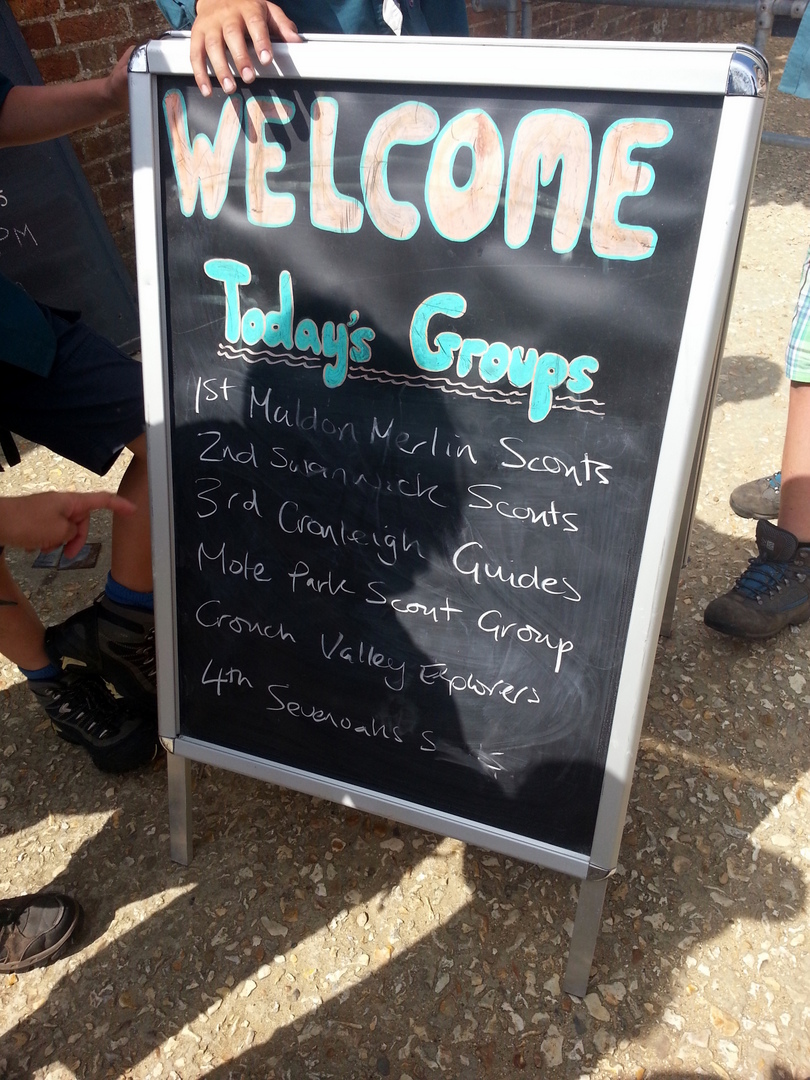 WELCOME
Today's Groups
1st Maldon Merlin Scouts
2nd Swanwick Scouts
3rd Cranleigh Guides
Mote Park Scout Group
Crouch Valley Explorers
4th Sevenoaks S
PM